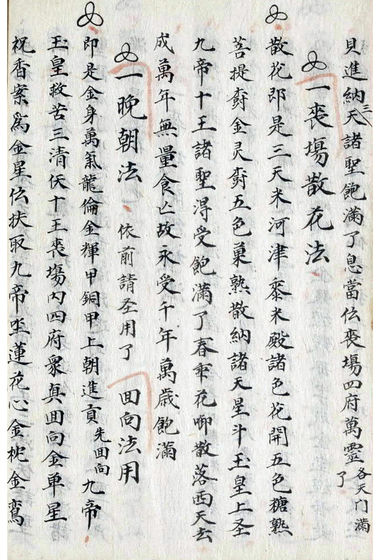 貝進納三天諸聖飽滿了息當伝喪場四府萬灵各天門滿了
一喪場散花法
散花即是三天米河津黍米殿諸色花開五色糖熟
菩提齊金灵齊五色菓熟散納諸天星斗玉皇上圣
九帝十王諸聖得受飽滿了春花唧散落西天去
成萬年無量食亾故永受千年萬歲飽滿
一晚朝法 依前請圣用了 一回向法用
即是金身萬氣龍倫金輝甲銅甲上朝進貢先回向九帝
玉皇救苦三清伏十王喪場内四府衆真回向金單星
祝香案為金星伝扶取九帝坐蓮花心金枕金鸞